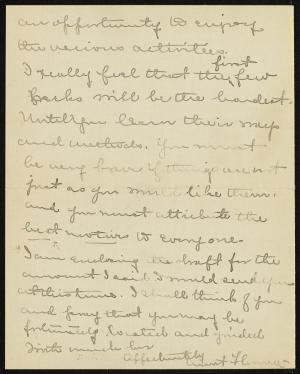 an opportunity to enjoy
the various activities.
I really feel that the first few
weeks will be the hardest.
Until you learn their ways
and methods. You must
be very brave if things are not
just as you would like them.
and you must attribute the
best motives to everyone.
I am enclosing the draft for the
amount I said I would send you
at this time. I shall think of you
and pray that you may be
fortunately located and guided
With much love
Affectionately
Aunt